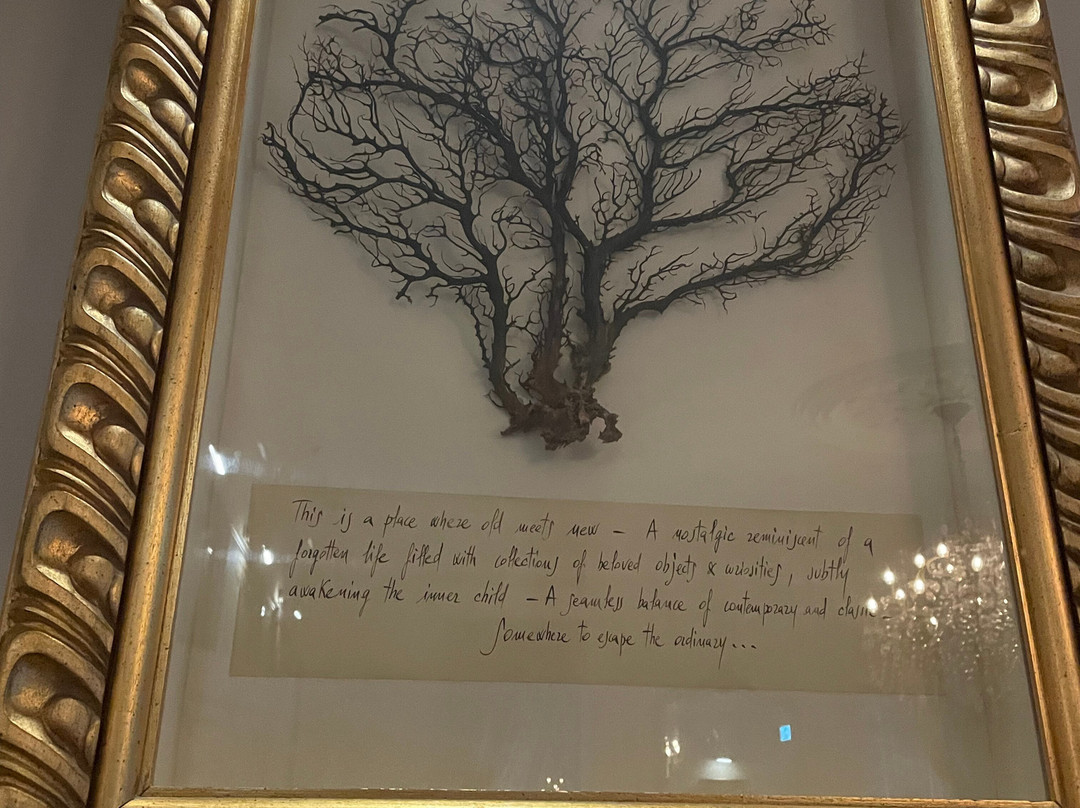 This is a place where old meets new – A nostalgic reminiscent of a
forgotten life filled with collections of beloved objects & curiosities, subtly
awakening the inner child – A seamless balance of contemporary and classic –
Somewhere to escape the ordinary...